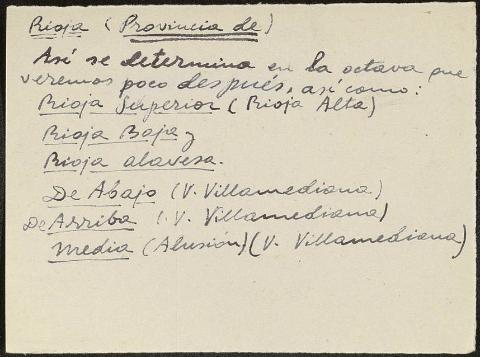 Rioja (Provincia de)
Así se determina en la octava que
veremos poco después, así como:
Rioja Superior (Rioja Alta)
Rioja Baja y
Rioja alavesa.
De Abajo (V. Villamediana)
De Arriba (V. Villamediana)
Media (Alusión) (V. Villamediana)